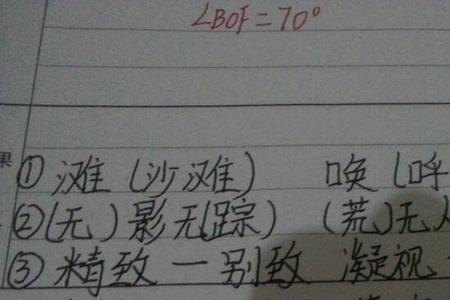 ∠BOF=70°
果
①滩(沙滩) 唤(呼
②(无)影无(踪) (荒)无人
③精致一别致 凝视